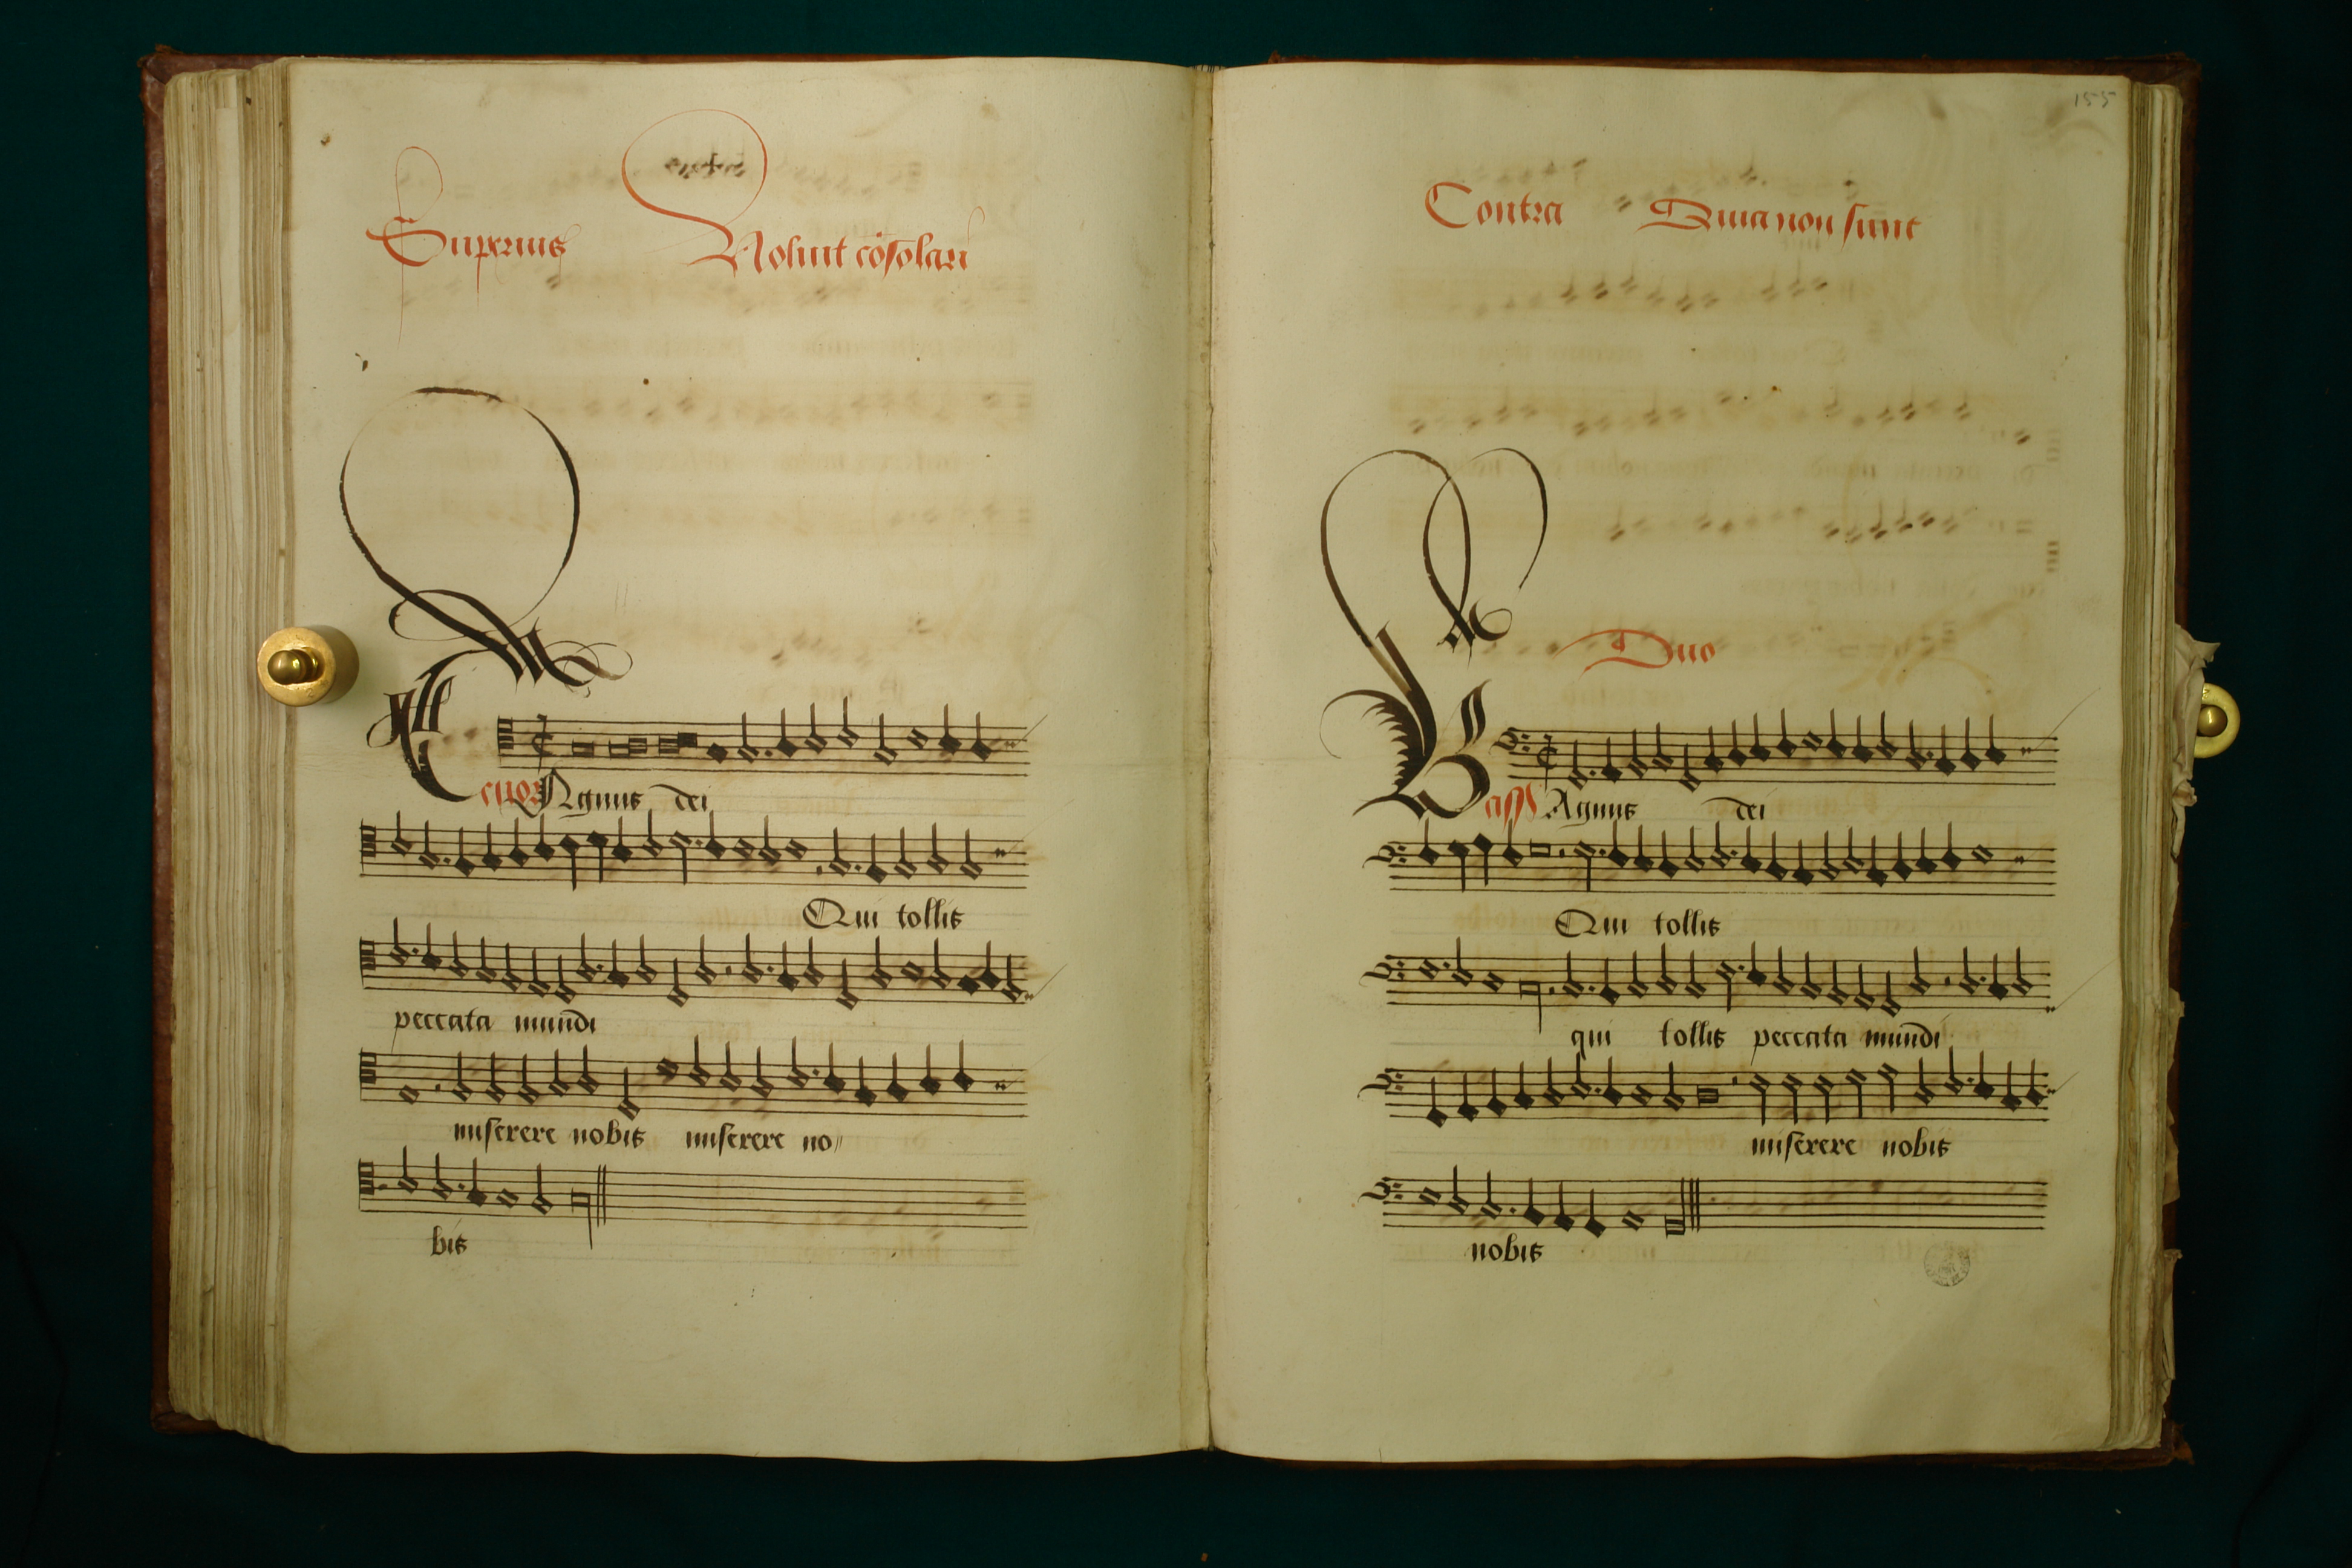 Superius Noluit cōsolari
Tenor Agnus dei
Qui tollis
peccata mundi
miserere nobis miserere no
bis
155
Contra Quia non sunt
Duo
Bass Agnus dei
Qui tollis
qui tollis peccata mundi
miserere nobis
nobis